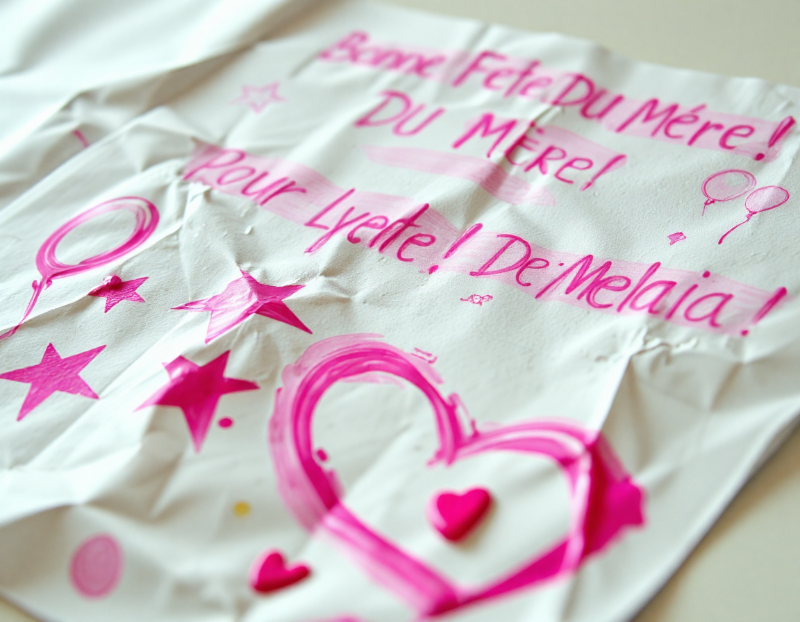 Bonne Fete Du Mére!
DU MÈRE!
Pour Lyette! De Melaia!